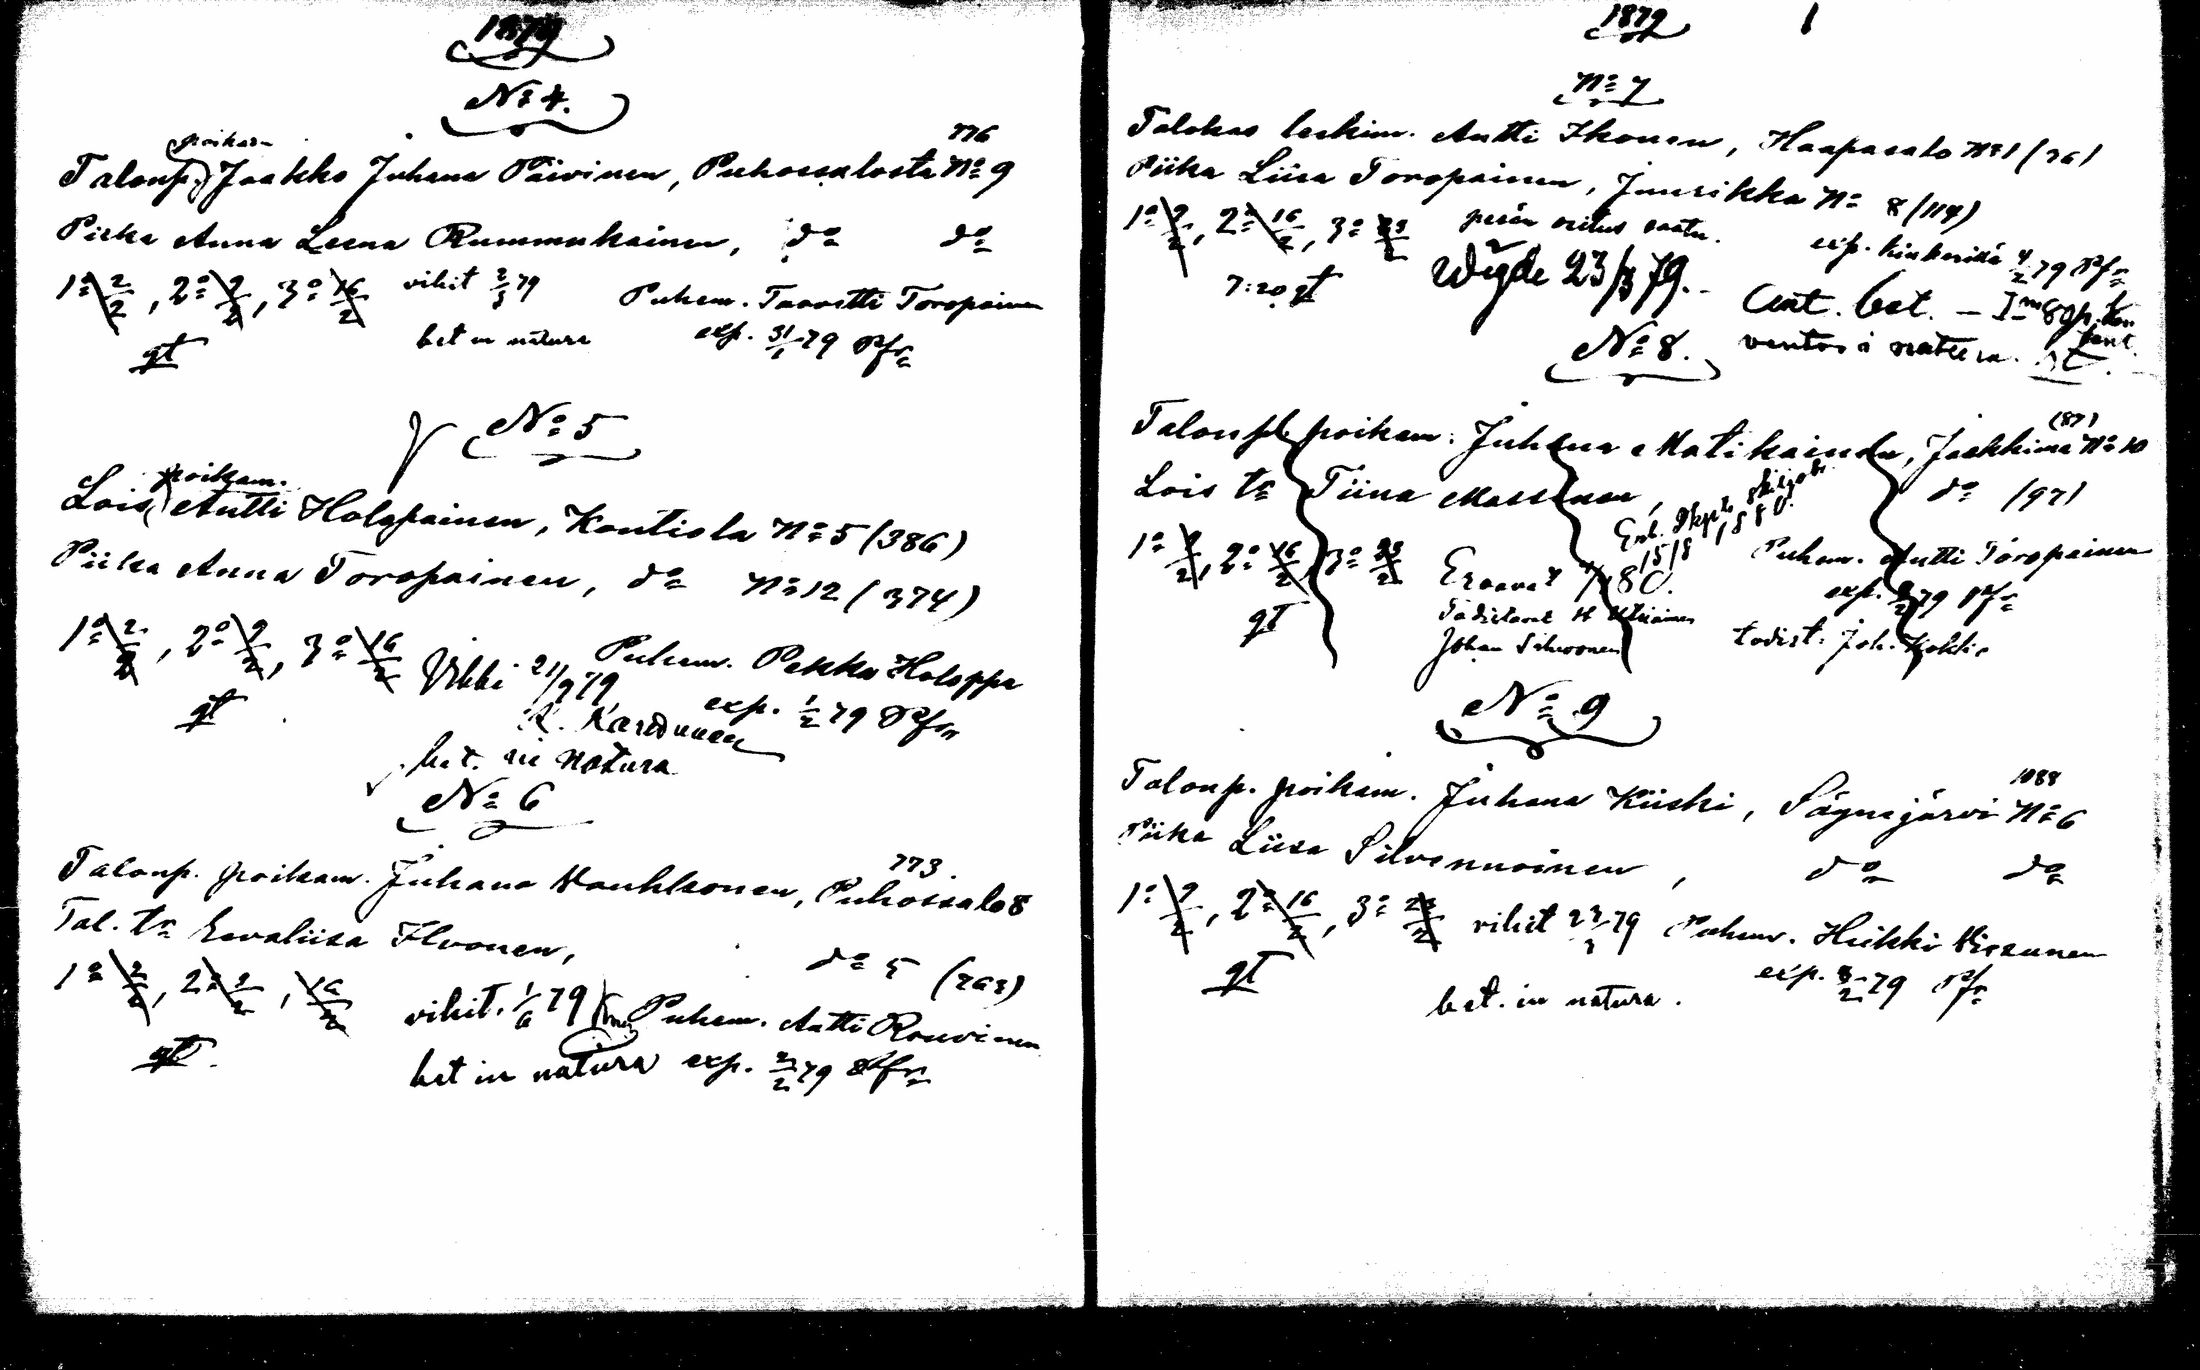 1879
No 4.
poikam
Talonp. Jaakko Juhana Päivinen, Puhossalosta No 9
776
Piika Anna Leena Rummukainen, do do
1o 2/2, 2o 9/2, 3o 16/2 vihit 2/3 79 Puhem. Taavetti Toropainen
gt bet in natura exp. 31/1 79 Pfr
No 5
poikam.
Lois Antti Holopainen, Kontiola No 5 (386)
Piika Anna Toropainen, do No 12 (374)
1o 2/2, 2o 9/2, 3o 16/2 Puhem. Pekka Holoppa
gt Vihki 21/9 79 exp. 1/2 79 Pfr
K. Karvonen
bet. in natura
No 6
Talonp. poikam. Juhana Vauhkonen, Puhossalo 8
773.
Tal. tr Eevaliisa Ilvonen, do 5 (763)
1o 2/2, 2o 9/2, 16/2 vihit. 1/6 79 Puhem. Antti Rouvinen
gt. bet in natura exp. 2/2 79 Pfr
1879
No 7
Talokas leskim. Antti Ikonen, Haapasalo No 1 (76)
Piika Liisa Toropainen, Juurikka No 8 (114)
1o 9/2, 2o 16/2, 3o 23/2 perän oritus saatu. exp. kinkerillä 4/2 79 Pfr
7:20 gt Wigde 23/3 79. Ant. bet. - 1 m 80 p. kon
ventos i natura.
No 8.
Talonp. poikam. Juhana Matikainen, Jaakkima No 10
(87)
Lois tr Tiina Massinen, do (97)
1o 9/2, 2o 16/2, 3o 23/2 Puhem. Antti Toropainen
Enl. 15/8 1880.
gt Eroavat 80. exp. 79 Pfr
Todistavat H
Johan Silvonen todist: Joh. Kokki
No 9
Talonp. poikam. Juhana Kiiski, Sägnejärvi No 6
1088
Piika Liisa Silvennoinen, do do
1o 9/2, 2o 16/2, 3o 23/2 vihit 23/3 79 Puhem. Heikki Hirvonen
gt bet. in natura. exp. 8/2 79 Pfr